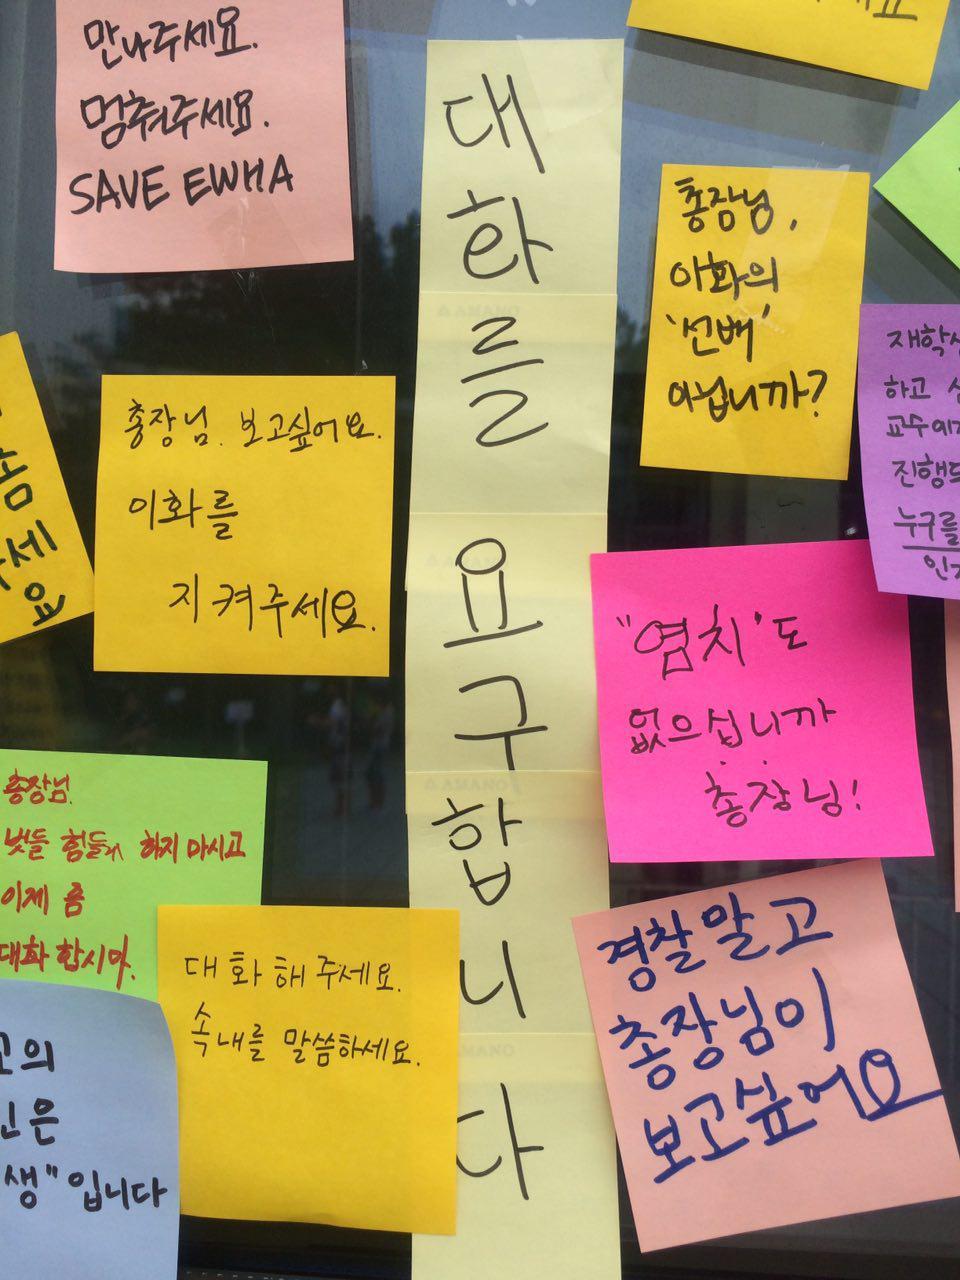 만나주세요.
멈춰주세요.
SAVE EWHA
대화를요구합니다
총장님,
이화의
'선배'
아닙니까?
총장님. 보고싶어요.
이화를
지켜주세요.
좀
세
요
재학
하고
교수
진행
누구를
"염치'도
없으십니까
총장님!
총장님
벗들 힘들게 하지 마시고
이제 좀
대화 합시다.
대화해주세요.
속내를 말씀하세요.
경찰말고
총장님이
보고싶어요
고의
은
생" 입니다
AMANO
AMANO
AMANO